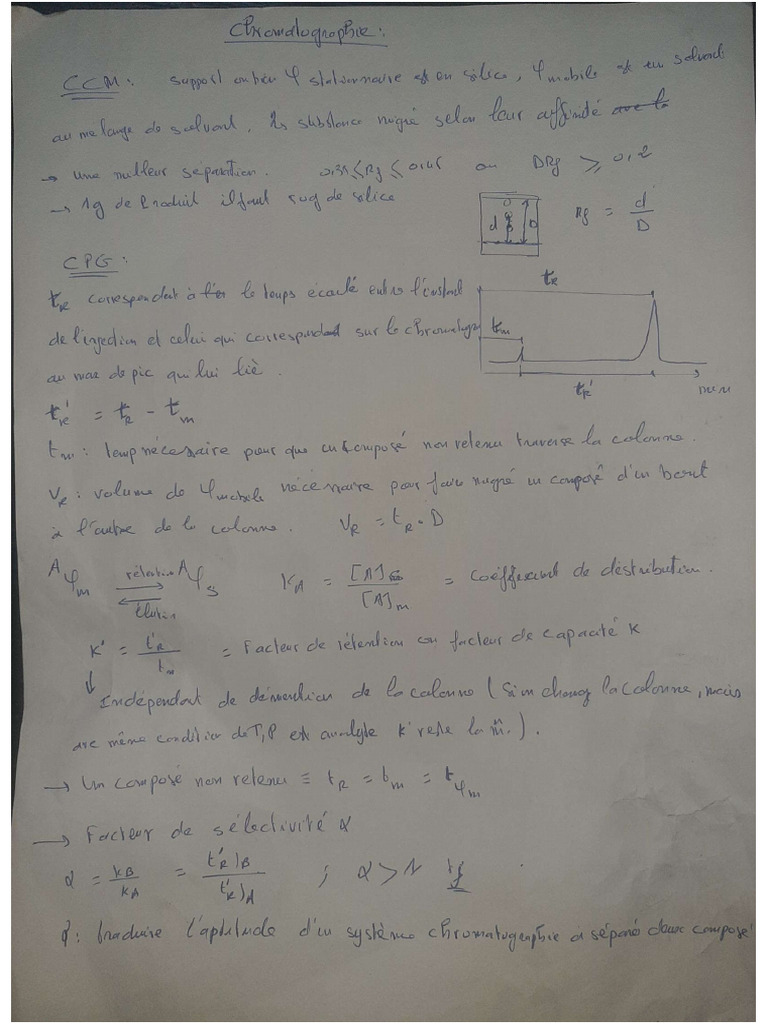 Chromatographie :
CCM : support φ stationnaire est en silice, φ mobile est en solvant
au melange de solvant. substance migré selon leur affinité avec la
→ une meilleur séparation. 0,35 ≤ Rf ≤ 0,45 ou DRf ≥ 0,2
→ 1g de Produit il faut 50g de silice
d D Rf = d/D
CPG :
tR correspondant à le temps écoulé entre l'instant
de l'injection et celui qui correspondant sur le chromatogr
au max de pic qui lui lié.
tR tm tR' min
tR' = tR - tm
tm : temp nécessaire pour que un composé non retenu traverse la colonne.
VR : volume de φ mobile nécessaire pour faire migré un composé d'un bout
à l'autre de la colonne. VR = tR . D
Aφm rétention Aφs KA = [A]s/[A]m = coéfficient de distribution.
élution
K' = t'R/tm = Facteur de rétention ou facteur de capacité K
↓ Indépendant de dimention de la colonne (Si on change la colonne, mais
avec même condition de T, P et analyte K' reste la m̂.).
→ Un composé non retenu ≡ tR = tm = tφm
→ Facteur de sélectivité α
α = kB/kA = t'R)B/t'R)A ; α > 1
α : traduire l'aptitude d'un système chromatographie à séparé deux composé